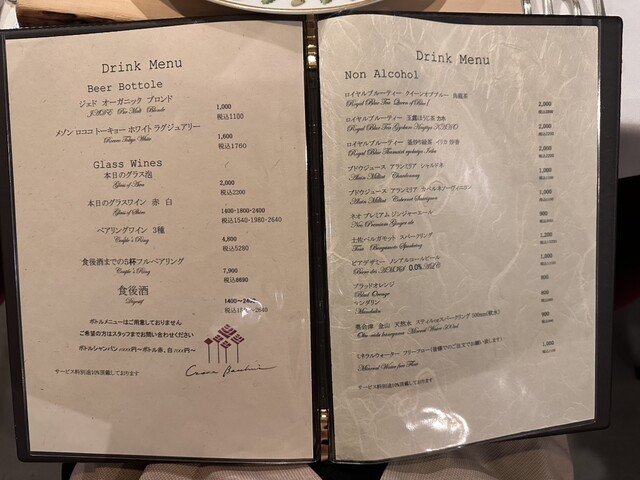 Drink Menu
Beer Bottole
ジェド オーガニック ブロンド 1,000
税込1100
メゾン ロココ トーキョー ホワイト ラグジュアリー 1,600
Rococo Tokyo White 税込1760
Glass Wines
本日のグラス泡 2,000
税込2200
本日のグラスワイン 赤 白 1400-1800-2400
Glass of Shine 税込1540-1980-2640
ペアリングワイン 3種 4,800
Couple's Ring 税込5280
食後酒までの5杯フルペアリング 7,900
Couple's Ring 税込8690
食後酒 1400~2400
Digestif
ボトルメニューはご用意しておりません
ご希望の方はスタッフまでお問い合わせください
サービス料別途10%頂戴しております
Drink Menu
Non Alcohol
ロイヤルブルーティー クイーンオブブルー 烏龍茶 2,000
Royal Blue Tea Queen of Blue
ロイヤルブルーティー 玉露ほうじ茶 カホ 2,000
Royal Blue Tea Gyokuro Hojicya KAHO
ロイヤルブルーティー 釜炒り緑茶 イリカ 2,000
ブドウジュース アランミリア シャルドネ 1,000
Alain Milliat Chardonnay
ブドウジュース アランミリア カベルネソーヴィニヨン 1,000
Alain Milliat Cabernet Sauvignon
ネオ プレミアム ジンジャーエール 900
Neo Premium Ginger ale
土佐ベルガモット スパークリング 1,200
Tosa Bergamoto Sparkring
ビアデザミー ノンアルコールビール 1,000
Biere des AMIS 0.0% ALC
ブラッドオレンジ 900
Blood Orange
マンダリン 900
Mandarin
奥会津 金山 天然水 スティルorスパークリング 500ml(炭水) 900
ミネラルウォーター フリーフロー(皆様でのご注文でお願い致します) 1,000
Mineral Water free Flow
サービス料別途10%頂戴しております